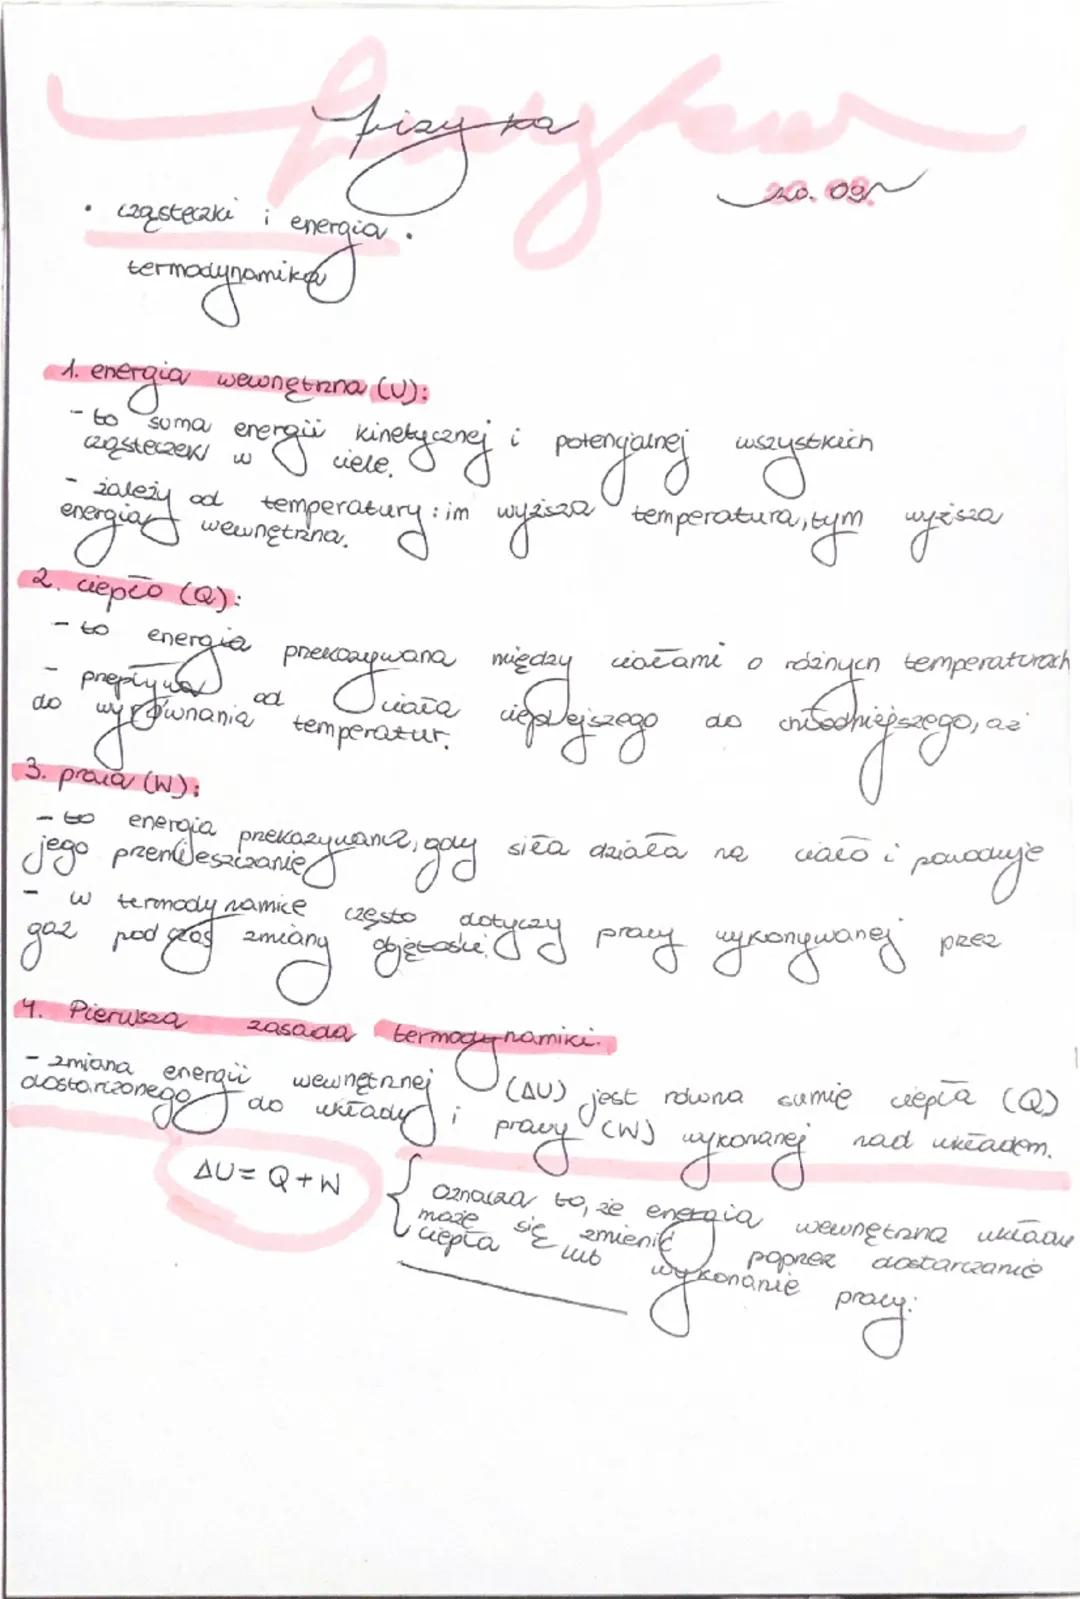 fizyka
fizyka
20.09
• cząsteczki i energia •
termodynamika
1. energia wewnętrzna (U):
- to suma energii kinetycznej i potencjalnej wszystkich
cząsteczek w ciele.
- zależy od temperatury: im wyższa temperatura, tym wyższa
energia wewnętrzna.
2. ciepło (Q):
- to energia przekazywana między ciałami o różnych temperaturach
- przepływa od ciała cieplejszego do chłodniejszego, aż
do wyrównania temperatur.
3. praca (W):
- to energia przekazywana, gdy siła działa na ciało i powoduje
jego przemieszczanie
- w termodynamice często dotyczy pracy wykonywanej przez
gaz podczas zmiany objętości.
4. Pierwsza zasada termodynamiki.
- zmiana energii wewnętrznej (ΔU) jest równa sumie ciepła (Q)
dostarczonego do układu i pracy (W) wykonanej nad układem.
ΔU = Q + W
oznacza to, że energia wewnętrzna układu
może się zmienić poprzez dostarczanie
ciepła lub wykonanie pracy.